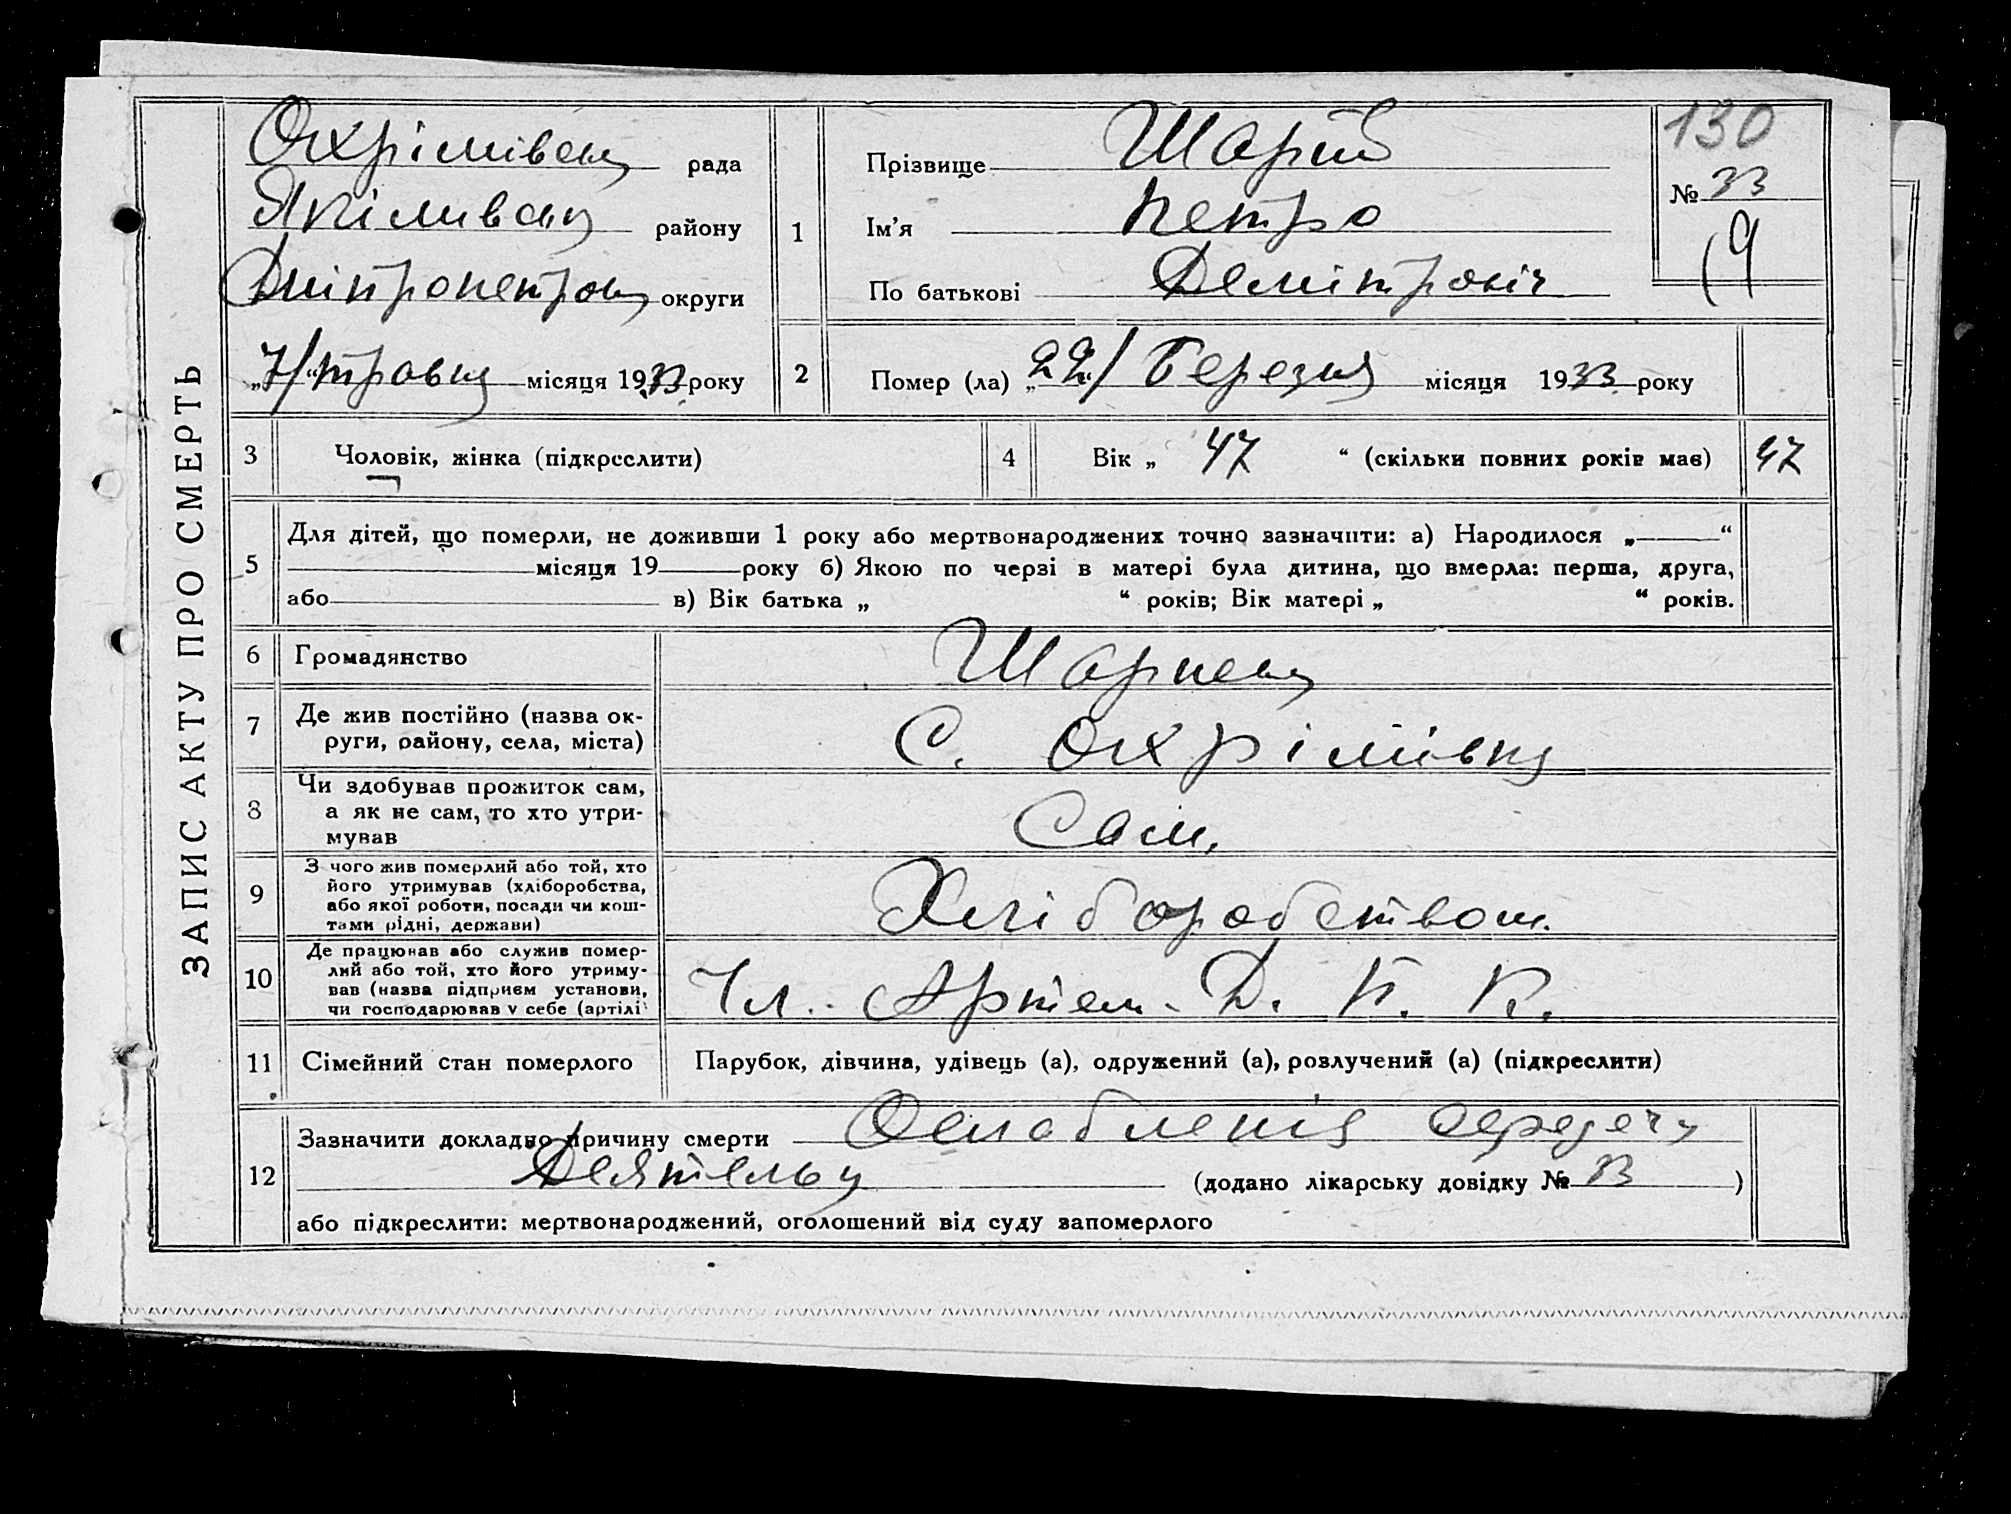 ЗАПИС АКТУ ПРО СМЕРТЬ
Охрімівськ рада
Якимівськ району
Дніпропетров округи
„7/“ травня місяця 1933 року
1
Прізвище Шарий
Ім'я Петро
По батькові Демітровіч
130
№ 33
19
2
Помер (ла) „22/“ Березня місяця 1933 року
3 Чоловік, жінка (підкреслити)
4 Вік „ 47 “ (скільки повних років має) 47
5
Для дітей, що померли, не доживши 1 року або мертвонароджених точно зазначити: а) Народилося „ “
місяця 19 року б) Якою по черзі в матері була дитина, що вмерла: перша, друга,
або в) Вік батька „ “ років; Вік матері „ “ років.
6 Громадянство
7 Де жив постійно (назва ок-
руги, району, села, міста)
С. Охрімівка
8 Чи здобував прожиток сам,
а як не сам, то хто утри-
мував
Сам.
9 З чого жив померлий або той, хто
його утримував (хліборобства,
або якої роботи, посади чи кош-
тами рідні, держави)
Хліборобством.
10 Де працював або служив помер-
лий або той, хто його утриму-
вав (назва підприєм установи,
чи господарював у себе (артілі
Чл. Артем. Д. П. К.
11 Сімейний стан померлого
Парубок, дівчина, удівець (а), одружений (а), розлучений (а) (підкреслити)
12
Зазначити докладно причину смерти Ослабленія сердечн
Деятельн (додано лікарську довідку № 33 )
або підкреслити: мертвонароджений, оголошений від суду запомерлого